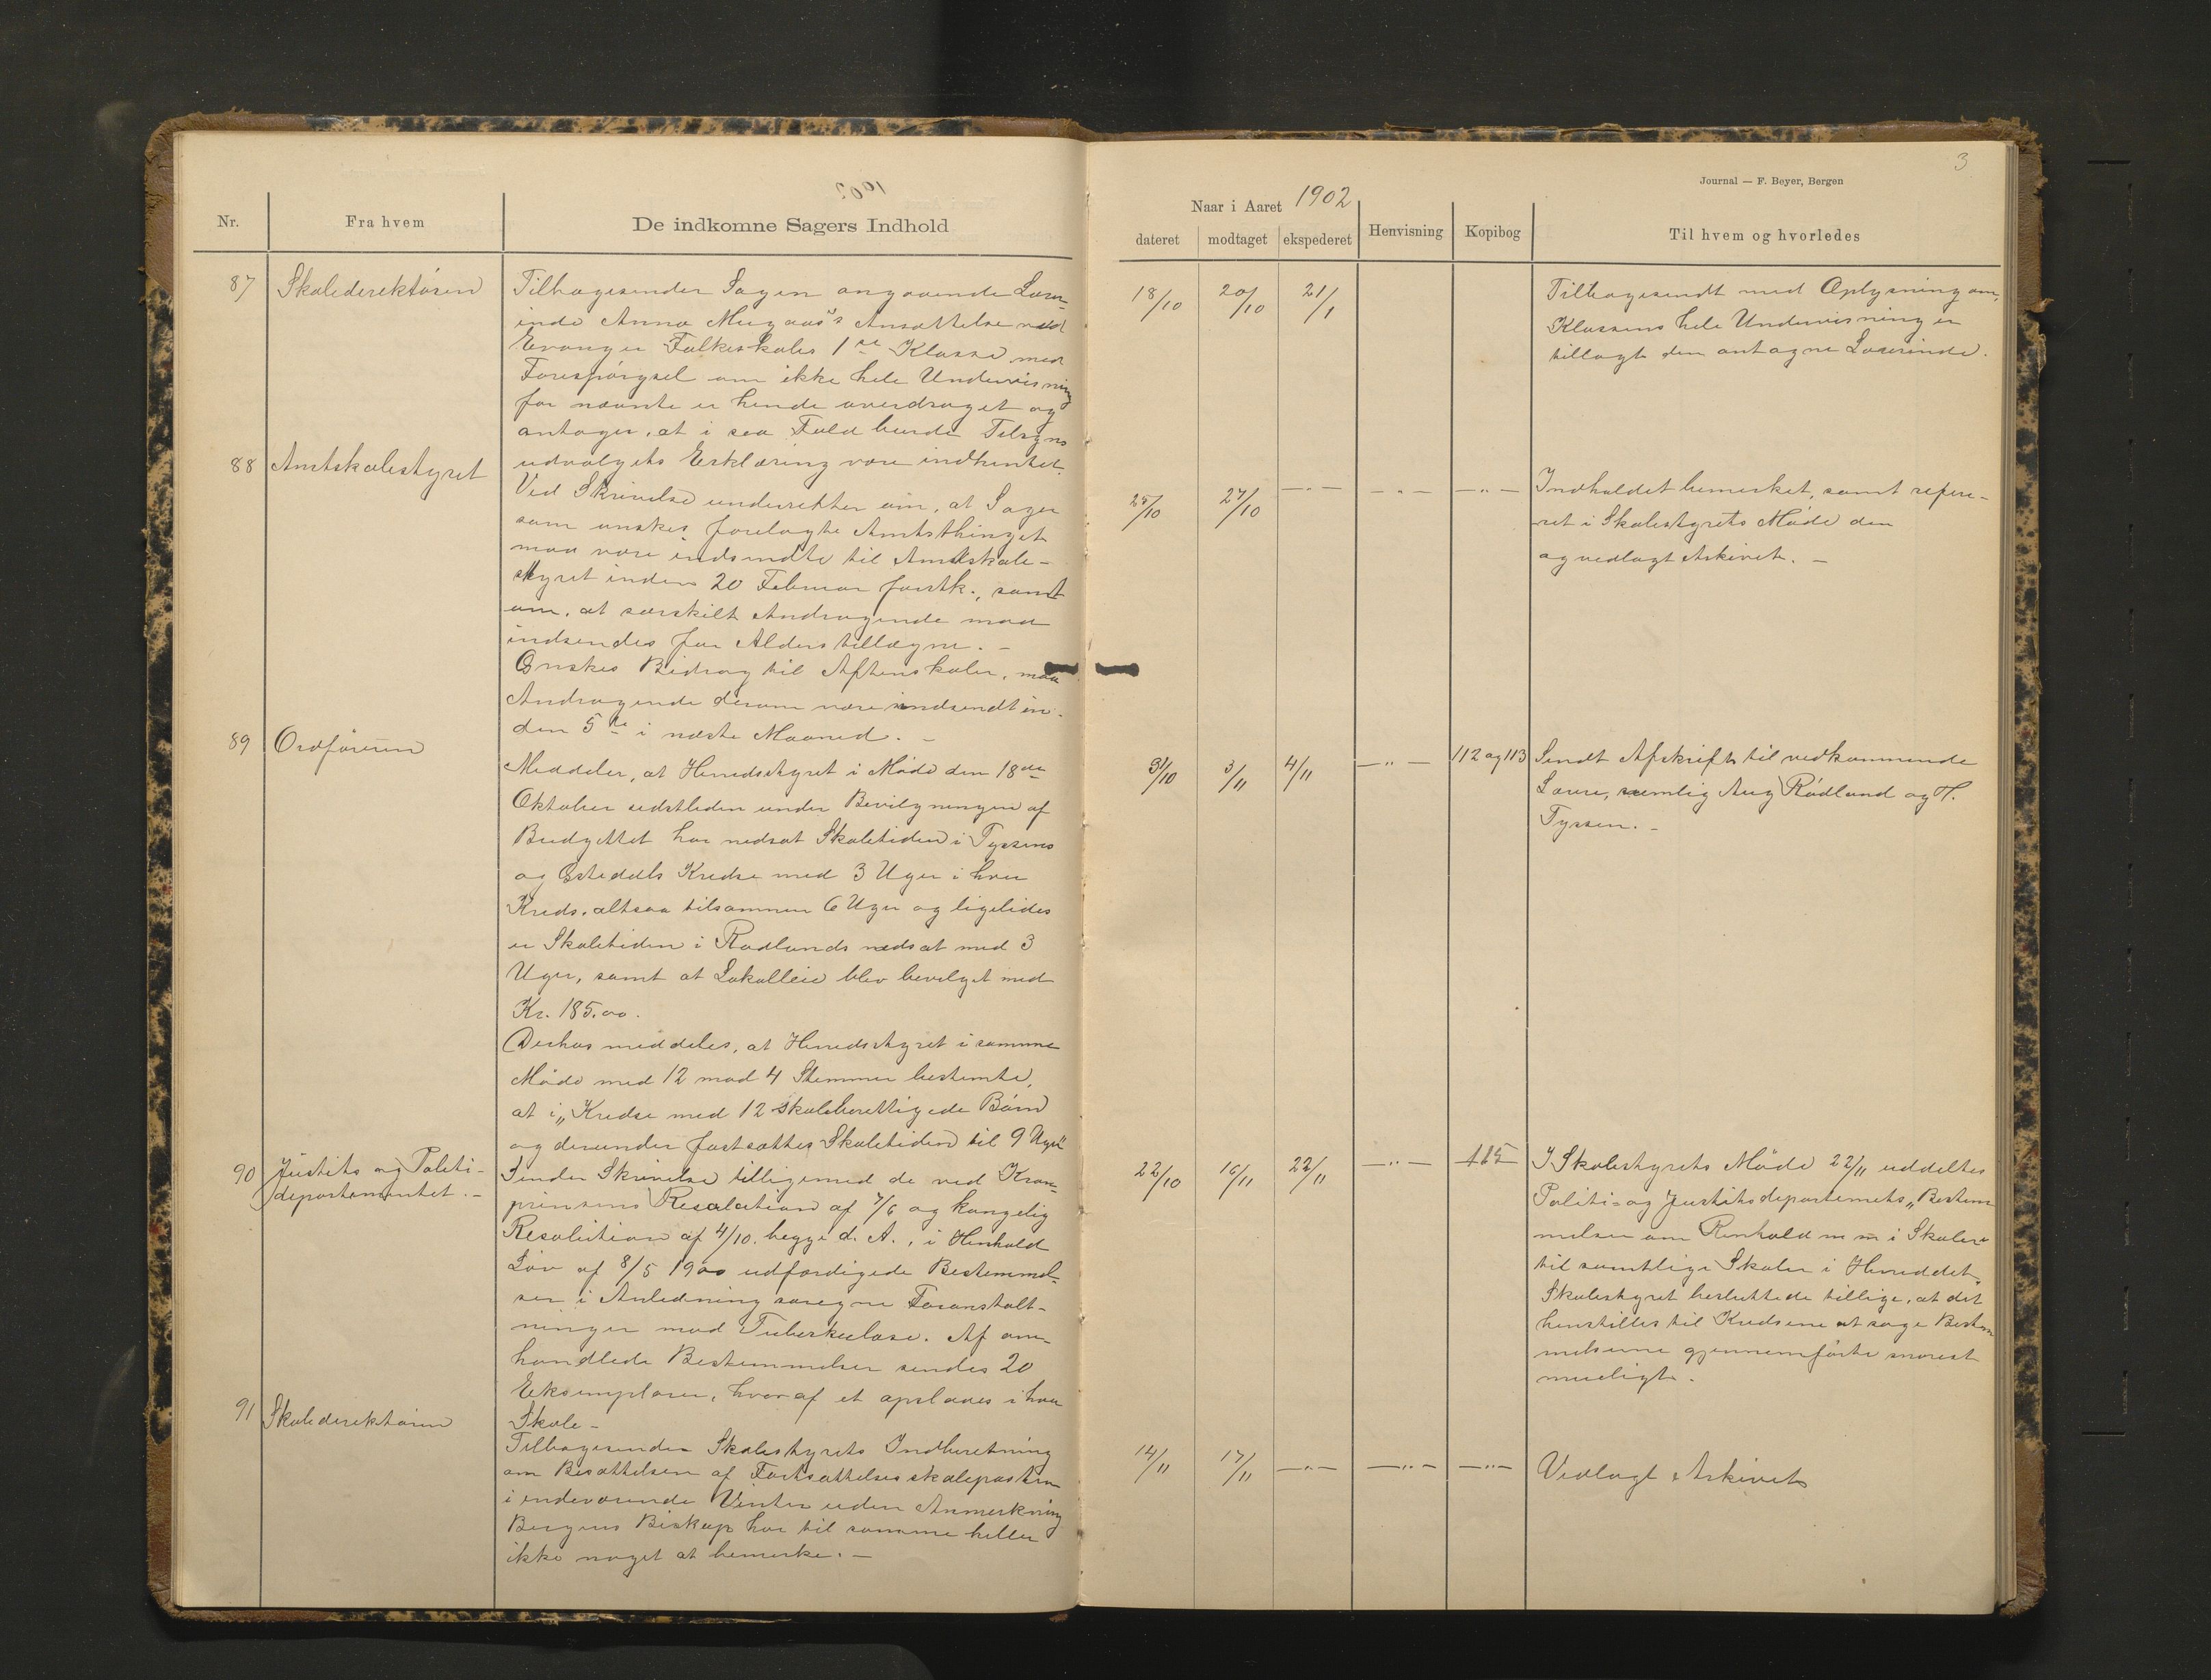 1902
Nr.
Fra hvem
De indkomne Sagers Indhold
87
Skoledirektøren
Tilbagesender Sagen angaaende Lærer-
inde Anna Mugaas's Ansættelse ved
Evanger Folkeskoles 1ste Klasse med
Forespørgsel om ikke hele Undervisning
for nævnte er hende overdraget og
antager, at i saa Fald burde Tilsyns
udvalgets Erklæring være indhentet.
88
Amtskolestyret
Ved Skrivelse underretter om, at Sager
som ønskes forelagte Amtsthinget
maa være indsendte til Amtskole-
styret inden 20 Februar førstk., samt
om, at særskilt Andragende maa
indsendes for Alderstillægne. -
Ønskes Bidrag til Aftenskoler, maa
Andragende derom være indsendt in-
den 5te i næste Maaned. -
89
Ordføreren
Meddeler, at Herredsstyret i Møde den 18de
Oktober sidstleden under Bevilgningen af
Budgettet har nedsat Skoletiden i Tyssens
og Gsteddls Kredse med 3 Uger i hver
Kreds, altsaa tilsammen 6 Uger og ligeledes
er Skoletiden i Rødlands nedsat med 3
Uger, samt at Lokalleie blev bevilget med
Kr. 185.00.
Derhos meddeles, at Herredsstyret i samme
Møde med 12 mod 4 Stemmer bestemte,
at i „Kredse med 12 skoleberettigede Børn
og derunder fastsættes Skoletiden til 9 Uger"
90
Justits og Politi-
departementet. -
Sender Skrivelse tilligemed de ved Kron-
prinsens Resolution af 7/6 og kongelig
Resolution af 4/10. begge d. A., i Henhold
Lov af 8/5 1900 udfærdigede Bestemmel-
ser i Anledning særegne Foranstalt-
ninger mod Tuberkulose. Af om-
handlede Bestemmelser sendes 20
Eksemplarer, hvoraf et opslaaes i hver
Skole -
91
Skoledirektøren
Tilbagesender Skolestyrets Indberetning
om Besættelsen af Fortsættelsesskoleposterne
i indeværende Vinter uden Anmerkning
Bergens Biskop har til samme heller
ikke noget at bemerke. -
3
Journal — F. Beyer, Bergen
Naar i Aaret 1902
dateret
modtaget
ekspederet
Henvisning
Kopibog
Til hvem og hvorledes
18/10
20/10
21/1
Tilbagesendt med Oplysning om,
Klassens hele Undervisning er
tillagt den antagne Lærerinde.
25/10
27/10
—"—
—"—
—"—
Indholdet bemerket, samt refere-
ret i Skolestyrets Møde den
og vedlagt Arkivet. -
31/10
3/11
4/11
—"—
112 og 113
Sendt Afskrift til vedkommende
Lærere, nemlig Aug Rødland og H.
Tyssen. -
22/10
16/11
22/11
—"—
115
I Skolestyrets Møde 22/11 uddeltes
Politi- og Justitsdepartemets „Bestem
melser om Renhold m m i Skolen"
til samtlige Skoler i Herreddet.
Skolestyret besluttede tillige, at det
henstilles til Kredsene at søge Bestem
melserne gjennemførte snarest
muligt.
14/11
17/11
—"—
—"—
—"—
Vedlagt Arkivet